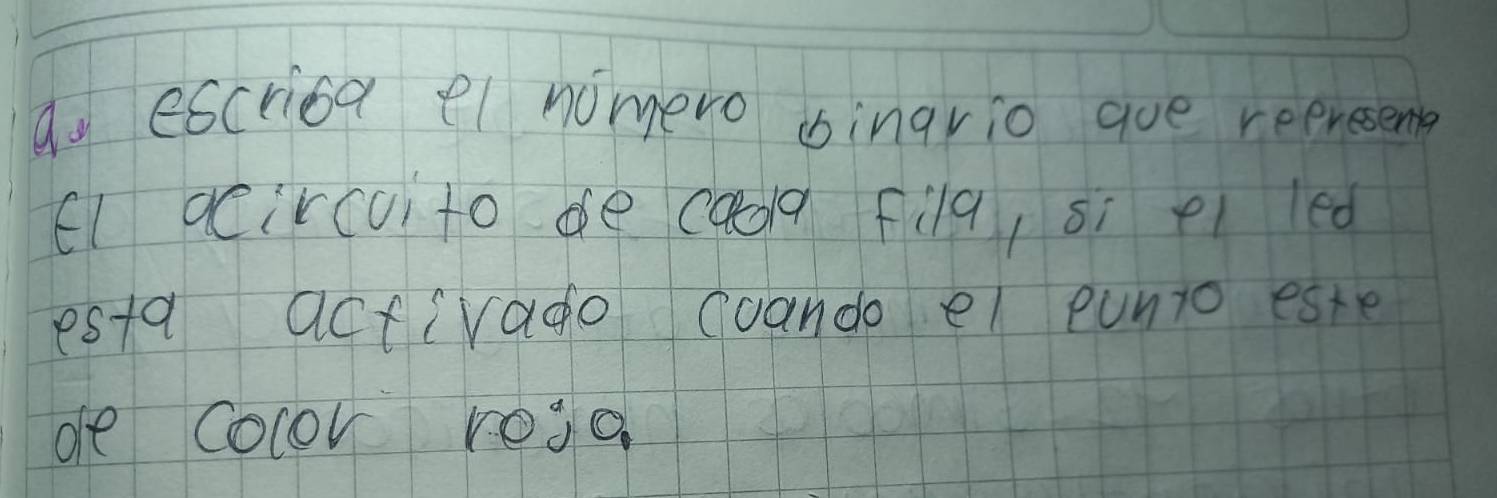 a. escriba el número binario que representa
El acircuito de cada fila, si el led
esta activado cuando el punto este
de color rojo.